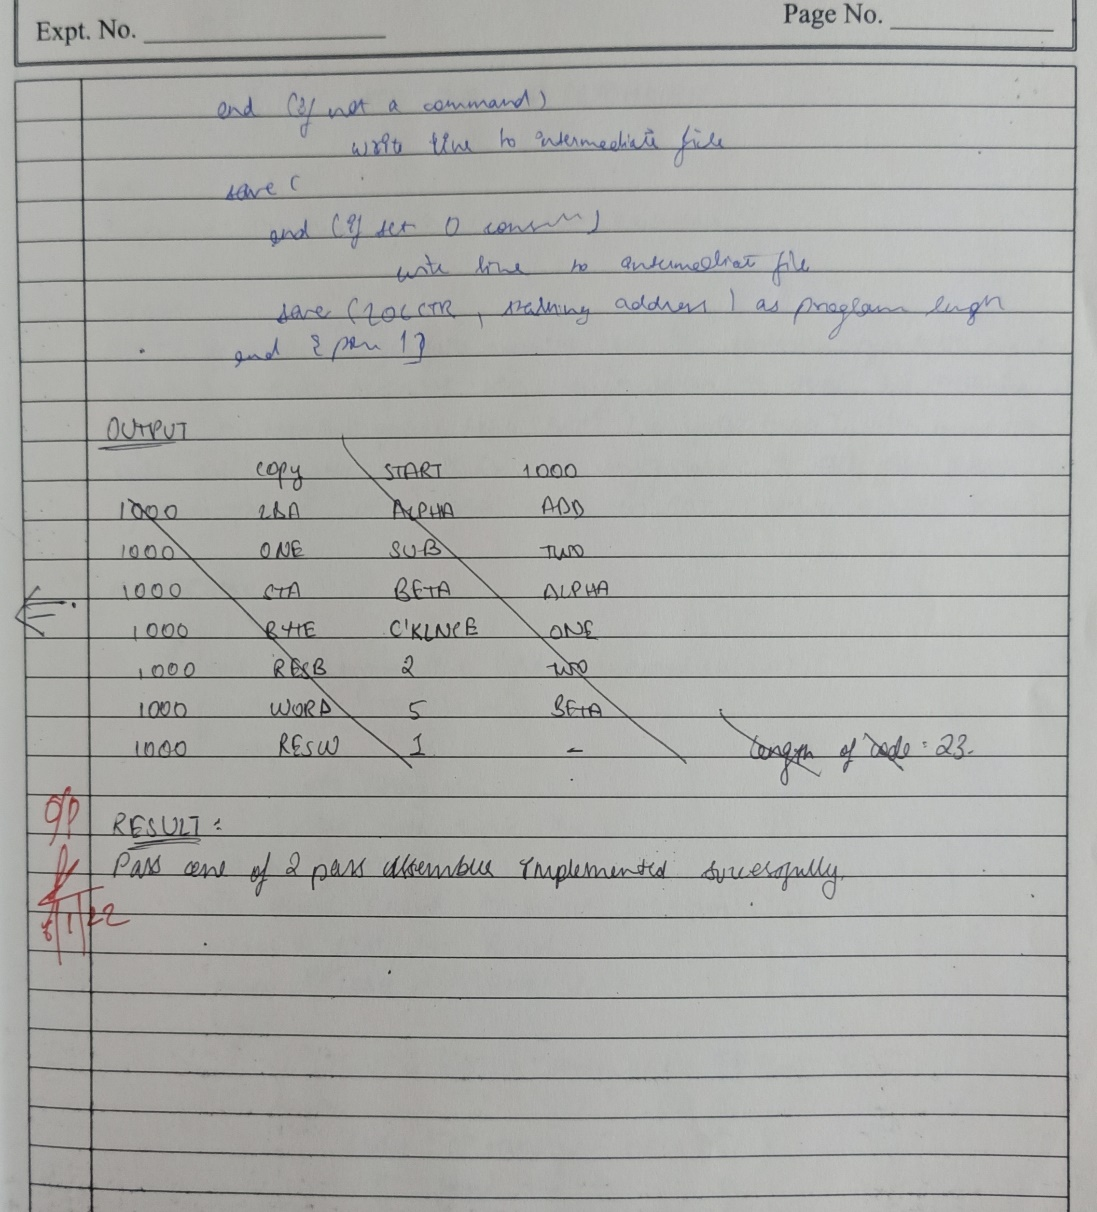 Expt. No.
Page No.
end (if not a command)
write line to intermediate file
save (
end (if set 0
write line to intermediat file
save (LOCCTR, starting address) as program
end {pass 1}
OUTPUT
COPY START 1000
1000 LDA ALPHA ADD
1000 ONE SUB TWO
1000 STA BETA ALPHA
1000 BYTE C'KLNCE ONE
1000 RESB 2 TWO
1000 WORD 5 BETA
1000 RESW 1 -
Length of code : 23.
RESULT :
Pass one of 2 pass assembler Implemented succesfully.
/1/22